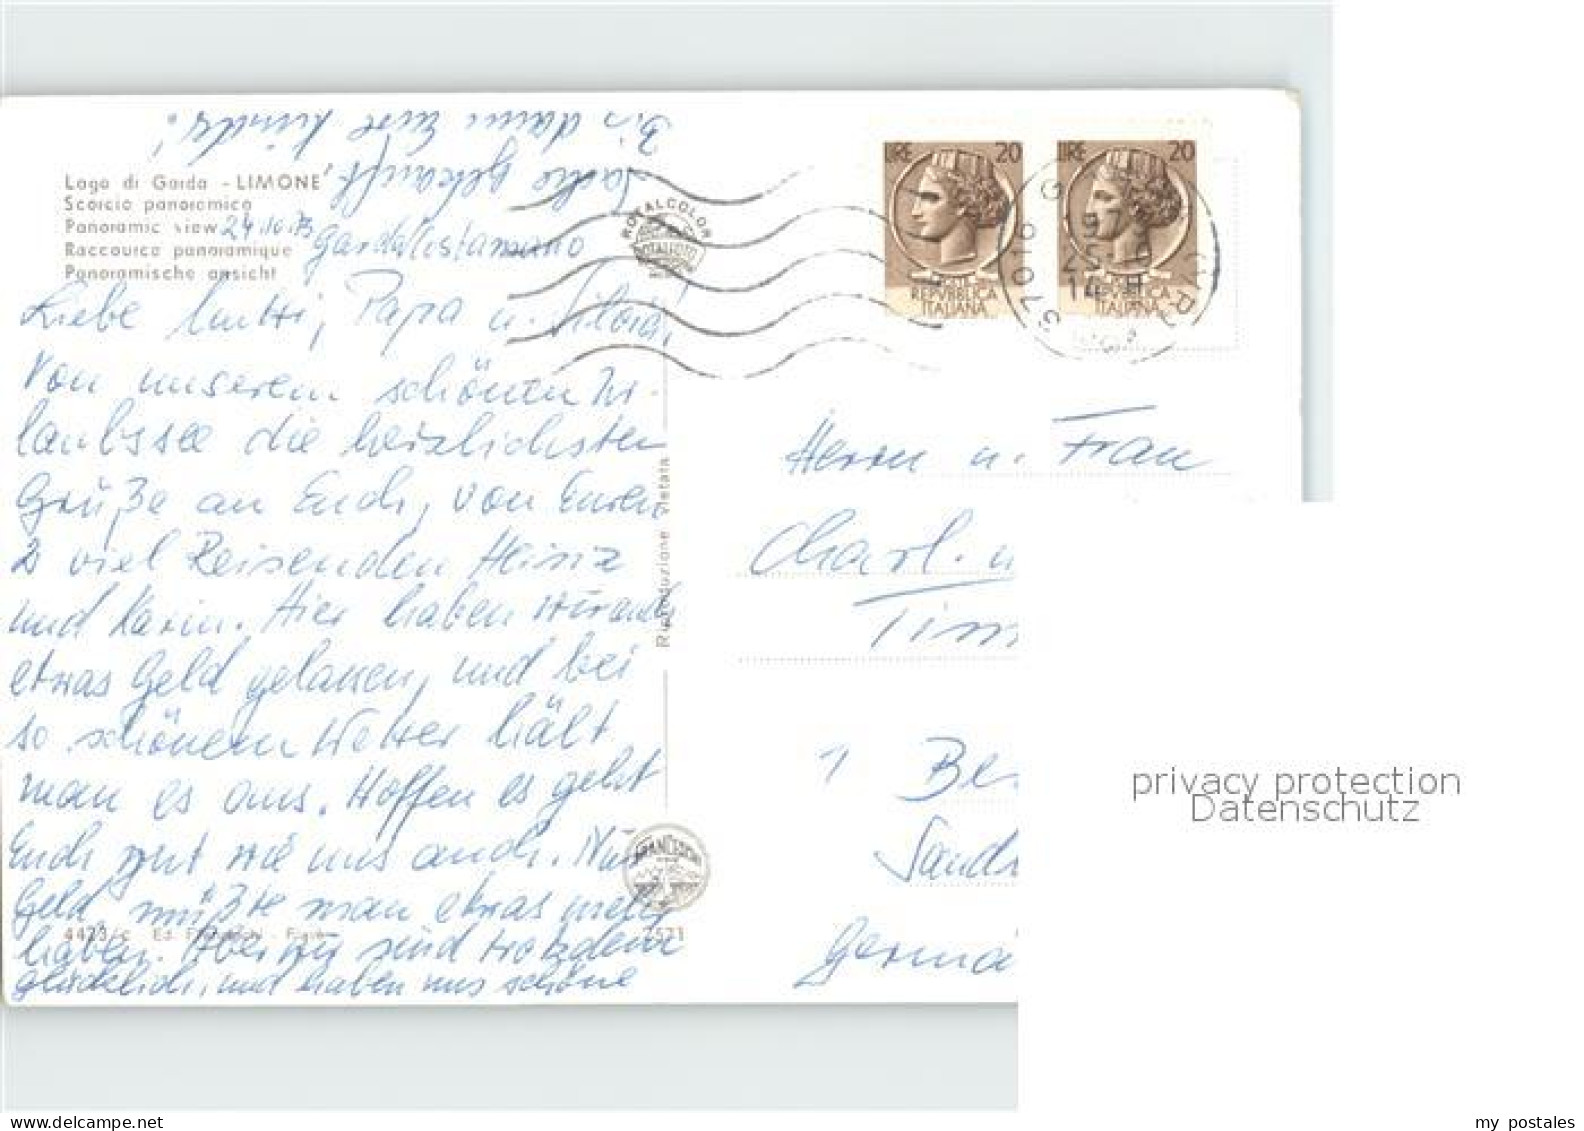 Lago di Garda - LIMONE
Scorcio panoramico
Panoramic view
Raccource panoramique
Panoramische ansicht
24.10.73
Liebe Mutti, Papa u. Silvia!
Von unserem schönen Ur-
laubssee die herzlichsten
Grüße an Euch, von Euren
2 viel Reisenden Heinz
und Karin. Hier haben wir auch
etwas Geld gelassen, und bei
so schönem Wetter hält
man es aus. Hoffen es geht
Euch gut wie uns auch. Nur
Geld müßte man etwas mehr
haben. Aber wir sind trotzdem
glücklich, und haben uns schöne
Sachen gekauft,
Bis dann Eure Kinder!
4423/c Ed.
2521
Riproduzione vietata
ROTALCOLOR
ROTALFOTO
LIRE 20
POSTE
REPVBBLICA
ITALIANA
LIRE 20
REPVBBLICA
ITALIANA
37016 G
25-10
Herrn u. Frau
Charl. u
Timm
1 Be
Sand
Germa
privacy protection
Datenschutz
my postales